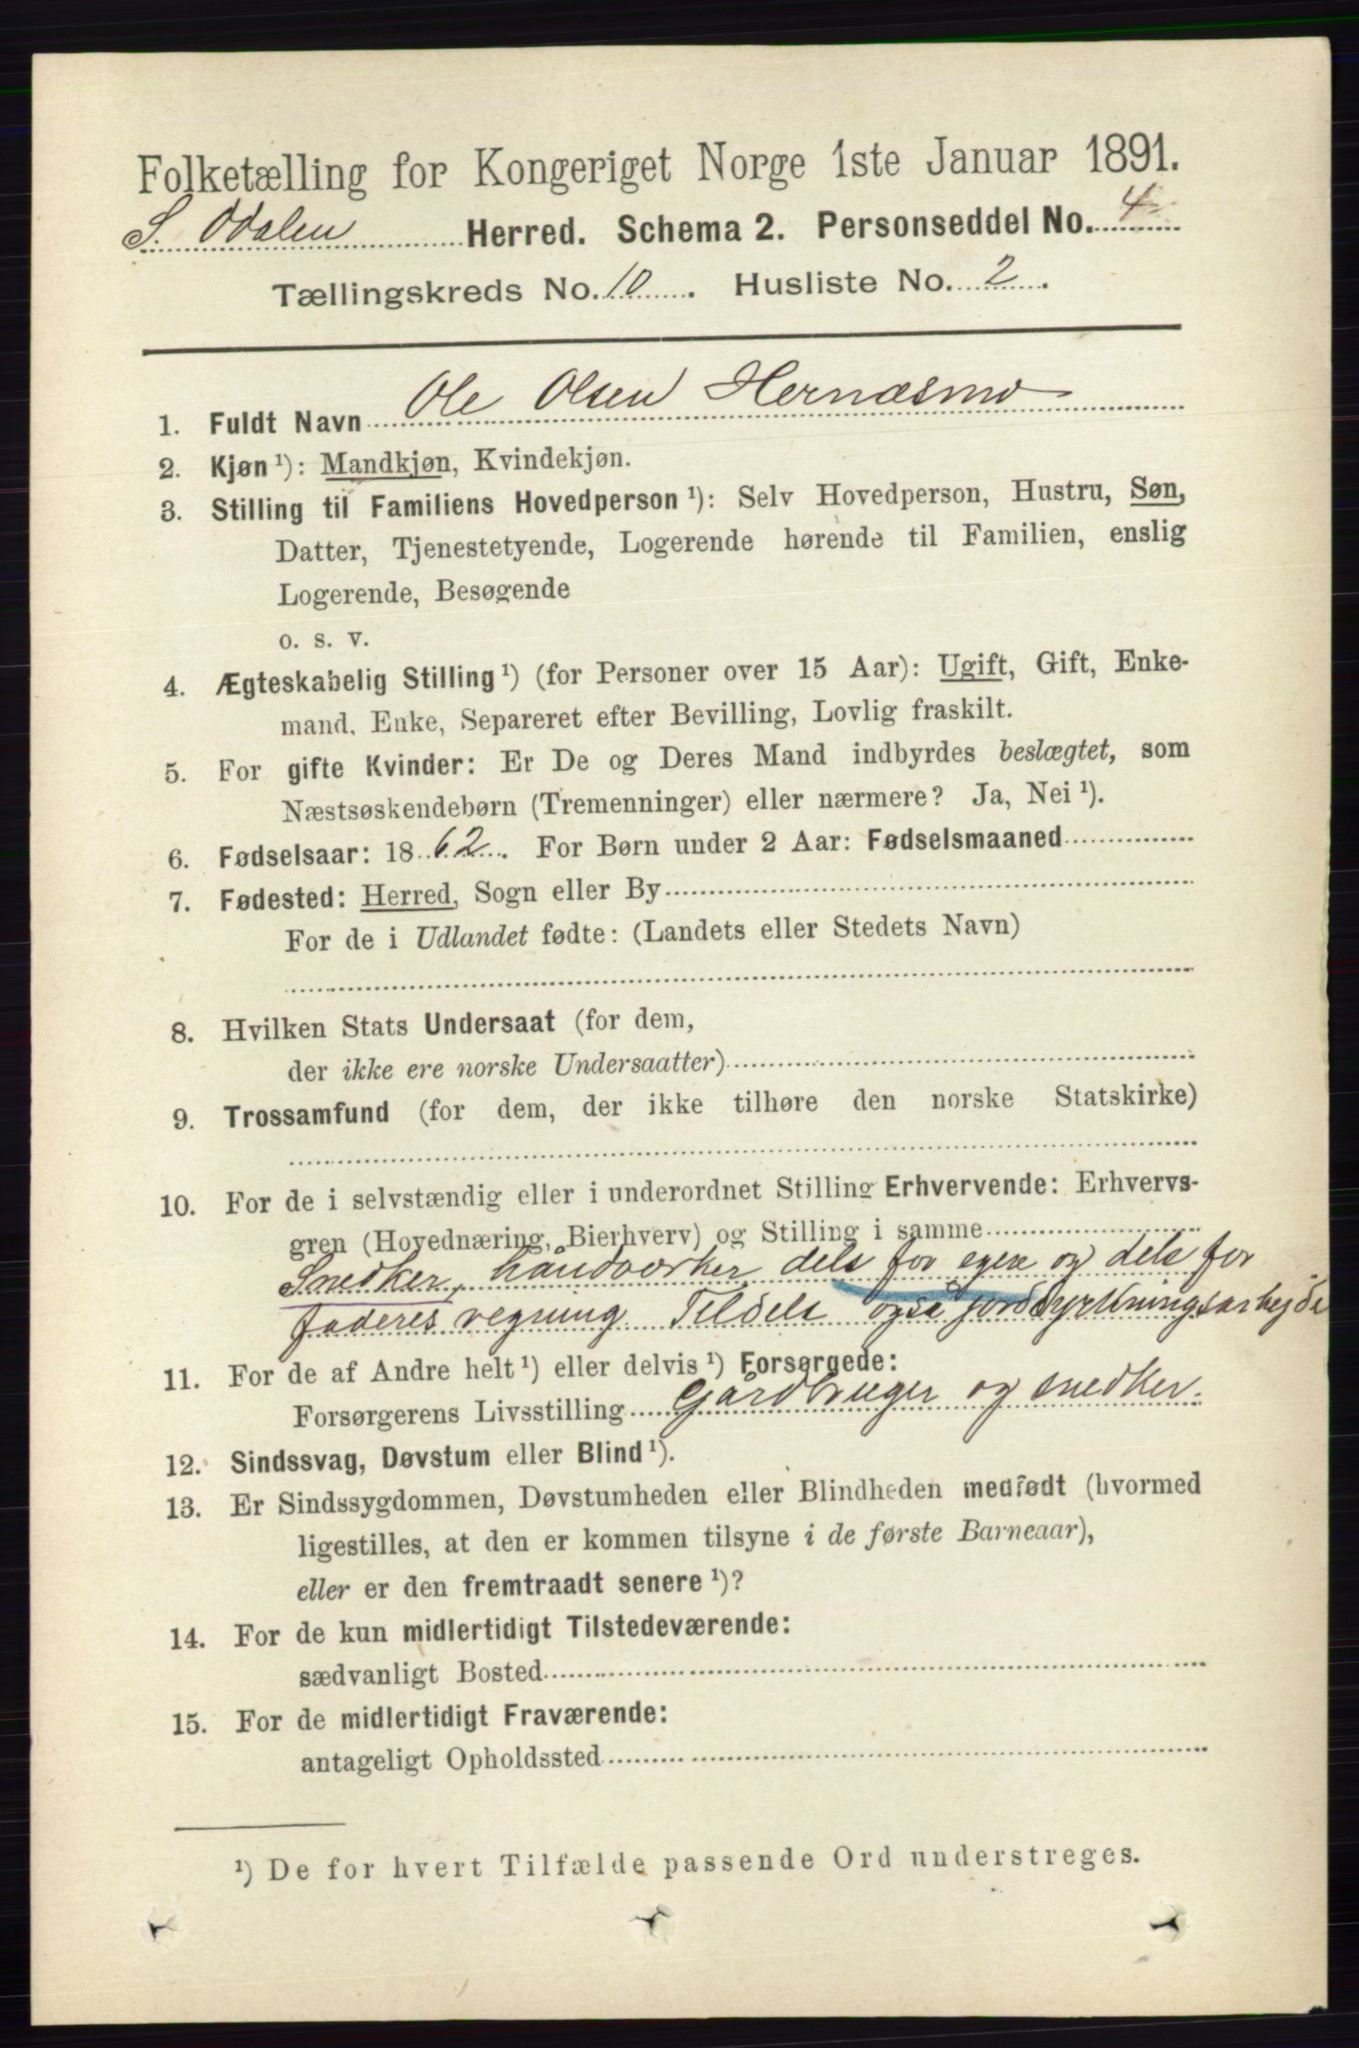 Folketælling for Kongeriget Norge 1ste Januar 1891.
S. Odalen Herred. Schema 2. Personseddel No. 4
Tællingskreds No. 10. Husliste No. 2.
1. Fuldt Navn Ole Olsen Hernæsmo
2. Kjøn ¹): Mandkjøn, Kvindekjøn.
3. Stilling til Familiens Hovedperson ¹): Selv Hovedperson, Hustru, Søn,
Datter, Tjenestetyende, Logerende hørende til Familien, enslig
Logerende, Besøgende
o. s. v.
4. Ægteskabelig Stilling ¹) (for Personer over 15 Aar): Ugift, Gift, Enke-
mand, Enke, Separeret efter Bevilling, Lovlig fraskilt.
5. For gifte Kvinder: Er De og Deres Mand indbyrdes beslægtet, som
Næstsøskendebørn (Tremenninger) eller nærmere? Ja, Nei ¹).
6. Fødselsaar: 1862. For Børn under 2 Aar: Fødselsmaaned
7. Fødested: Herred, Sogn eller By
For de i Udlandet fødte: (Landets eller Stedets Navn)
8. Hvilken Stats Undersaat (for dem,
der ikke ere norske Undersaatter)
9. Trossamfund (for dem, der ikke tilhøre den norske Statskirke)
10. For de i selvstændig eller i underordnet Stilling Erhvervende: Erhvervs-
gren (Hovednæring, Bierhverv) og Stilling i samme
Snedker, håndværker dels for egen og dels for
faderes regning Tildels også jordbyrkningsarbejde
11. For de af Andre helt ¹) eller delvis ¹) Forsørgede:
Forsørgerens Livsstilling Gårdbruger og snedker.
12. Sindssvag, Døvstum eller Blind ¹).
13. Er Sindssygdommen, Døvstumheden eller Blindheden medfødt (hvormed
ligestilles, at den er kommen tilsyne i de første Barneaar),
eller er den fremtraadt senere ¹)?
14. For de kun midlertidigt Tilstedeværende:
sædvanligt Bosted
15. For de midlertidigt Fraværende:
antageligt Opholdssted
¹) De for hvert Tilfælde passende Ord understreges.